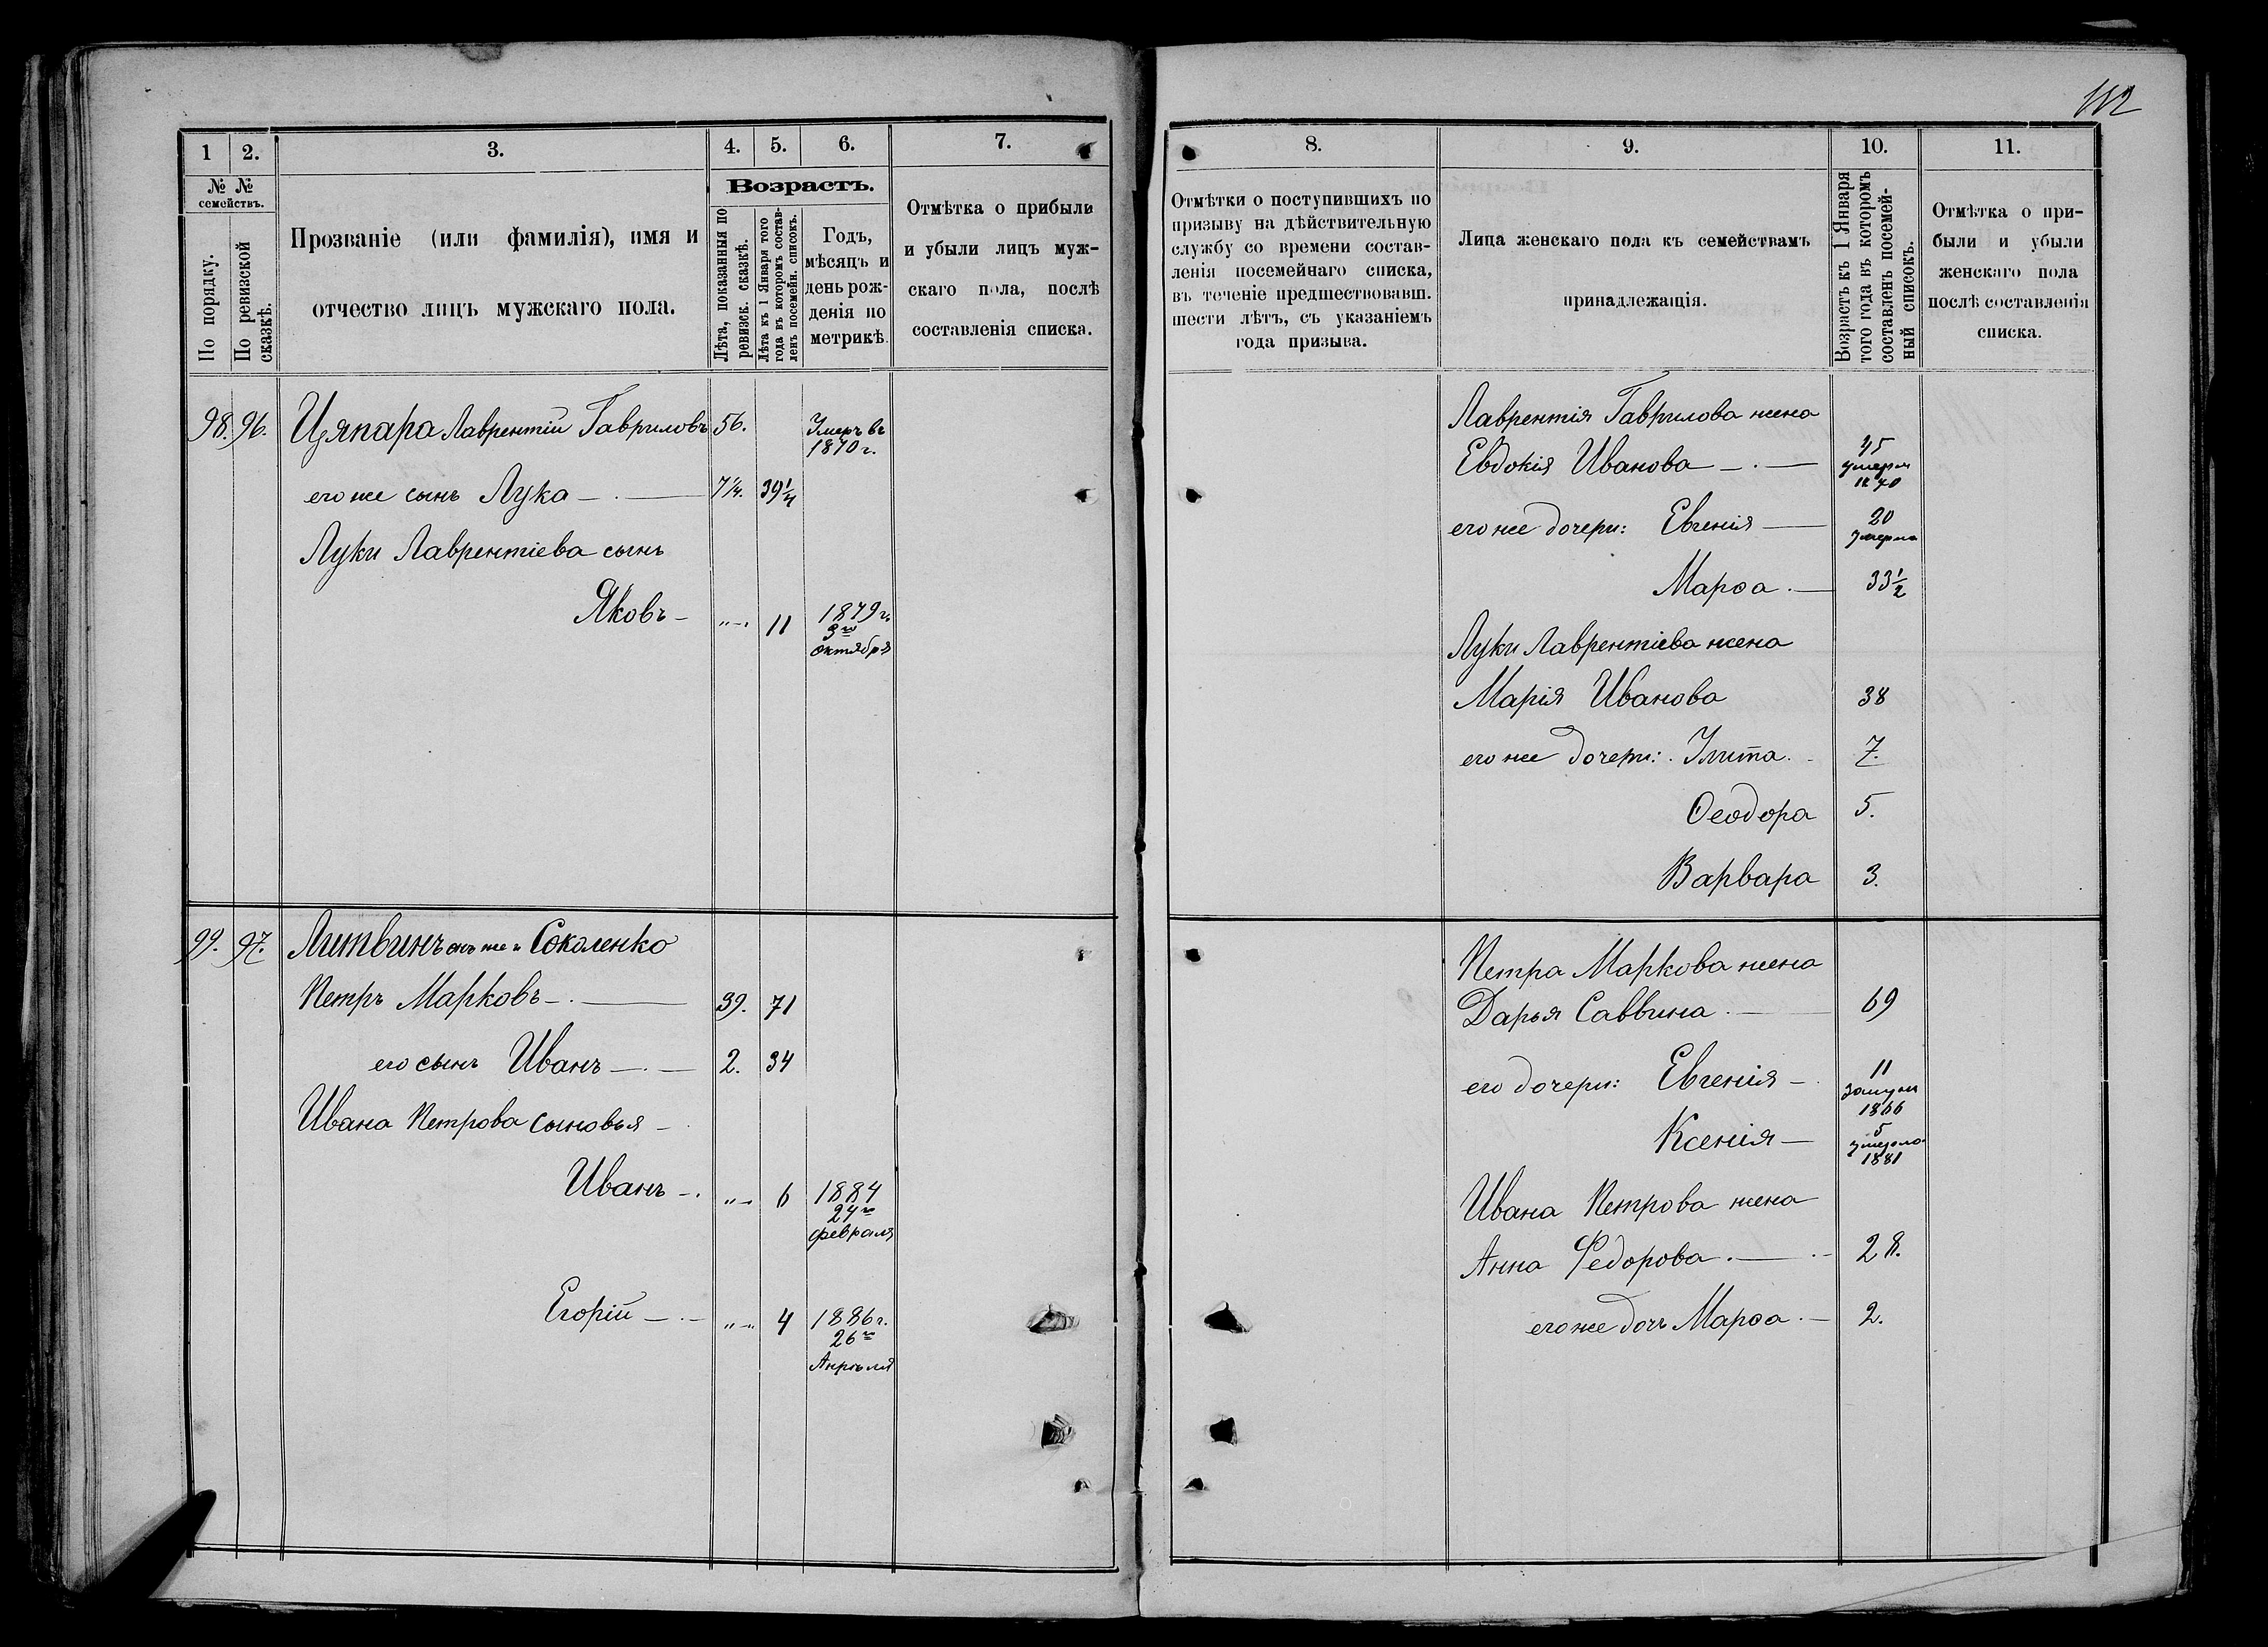 112
1
2.
3.
4.
5.
6.
7.
№ №
семействъ.
По порядку.
По ревизской
сказкѣ.
Прозваніе (или фамилія), имя и
отчество лицъ мужскаго пола.
Возрастъ.
Лѣта, показанныя по
ревизск. сказкѣ.
Лѣта къ 1 Января того
года въ которомъ состав-
ленъ посемейн. списокъ.
Годъ,
мѣсяцъ и
день рож-
денія по
метрикѣ.
Отмѣтка о прибыли
и убыли лицъ муж-
скаго пола, послѣ
составленія списка.
98. 96. Цяпара Лаврентій Гавриловъ 56. Умеръ въ
1870 г.
его же сынъ Лука 7¼. 39¼
Луки Лаврентіева сынъ
Яковъ „ 11 1879 г.
3го
октября
99. 97. Литвинъ онъ же и Соколенко
Петръ Марковъ 39. 71
его сынъ Иванъ 2. 34
Ивана Петрова сыновья
Иванъ „ 6 1884
24го
февраля
Егорій „ 4 1886 г.
26го
Апрѣля
8.
9.
10.
11.
Отмѣтки о поступившихъ по
призыву на дѣйствительную
службу со времени состав-
ленія посемейнаго списка,
въ теченіе предшествовавш.
шести лѣтъ, съ указаніемъ
года призыва.
Лица женскаго пола къ семействамъ
принадлежащія.
Возрастъ къ 1 Января
того года въ которомъ
составленъ посемей-
ный списокъ.
Отмѣтка о при-
были и убыли
женскаго пола
послѣ составленія
списка.
Лаврентія Гаврилова жена
Евдокія Иванова 45
умерла
1870
его же дочери: Евгенія 20
умерла
Марѳа 33½
Луки Лаврентіева жена
Марія Иванова 38
его же дочери: Улита 7.
Ѳеодора 5.
Варвара 3.
Петра Маркова жена
Дарья Саввина 69
его дочери: Евгенія 11
замужъ
1866
Ксенія 5
умерла
1881
Ивана Петрова жена
Анна Федорова 28.
его же дочь Марѳа 2.